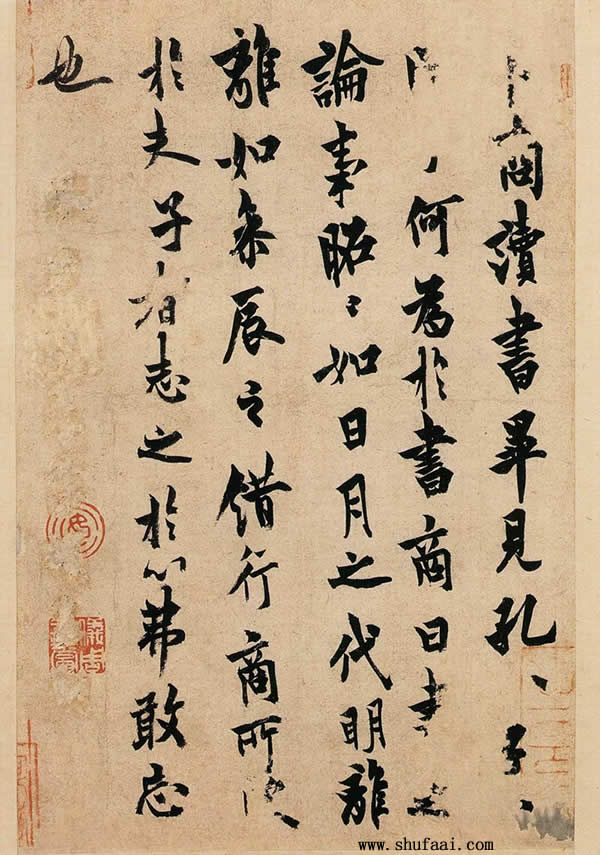 卜商讀書畢見孔〻子〻
何為於書商曰書之
論事昭〻如日月之代明離
離如參辰之錯行商所受
於夫子者志之於心弗敢忘
也
www.shufaai.com